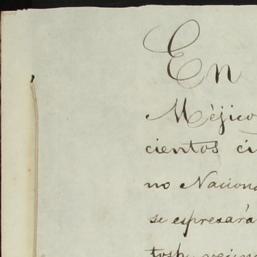 En
Méjico
cientos ci
no Naciona
se espresará